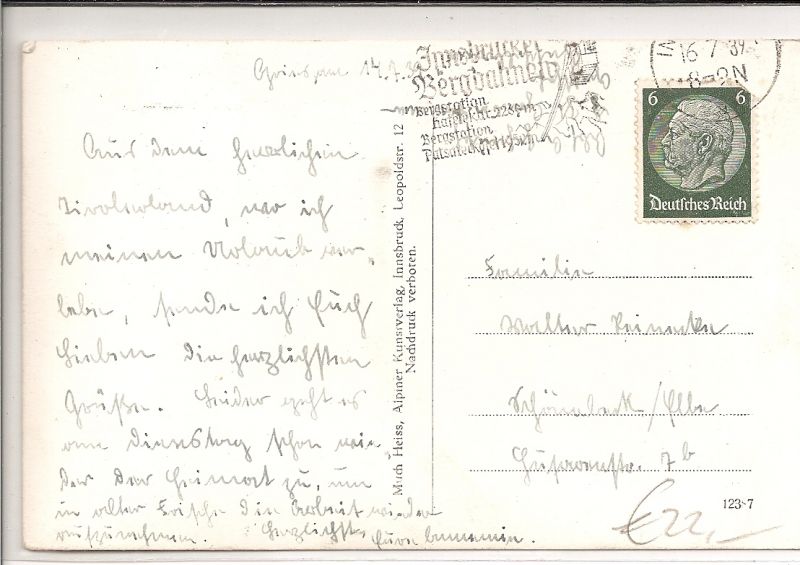 14.7.39
Aus dem herrlichen
Tirolerland, wo ich
meinen Urlaub ver-
lebe, sende ich Euch
Lieben die herzlichsten
Grüße. Leider geht es
am Dienstag schon wie-
der der Heimat zu, um
in alter Frische die Arbeit wieder
aufzunehmen. Herzlichst Eure
Much Heiss, Alpiner Kunstverlag, Innsbruck, Leopoldstr. 12
Nachdruck verboten.
Innsbrucker
Bergbahnen
Bergstation
Hafelekar 2289m
Bergstation
Patscherkofel 1951m
16 7 39
8-9N
6 6
Deutsches Reich
Familie
Walter Reinecke
Schönebeck/Elbe
Husarenstr. 7b
123-7
€22,-